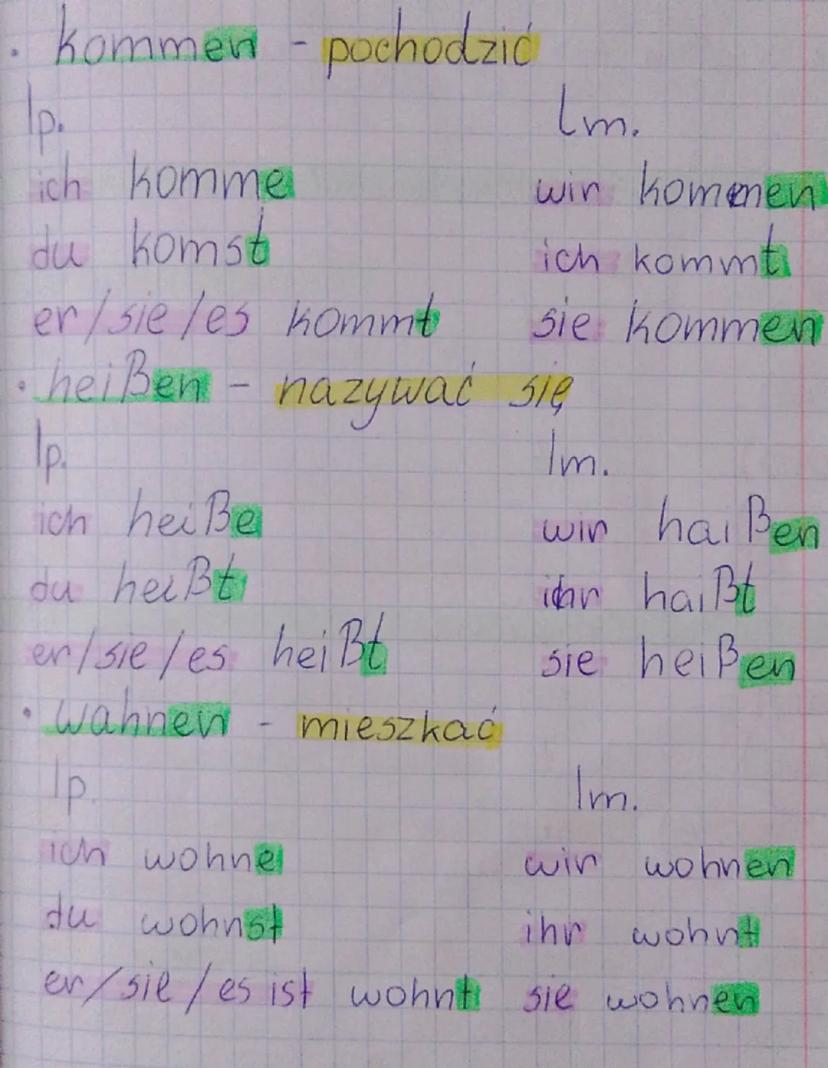 · kommen - pochodzić
lp. lm.
ich komme wir kommen
du komst ich kommt
er/sie/es kommt sie kommen
· heißen - nazywać się
lp. lm.
ich heiße wir haißen
du heißt ihr haißt
er/sie/es heißt sie heißen
· wahnen - mieszkać
lp. lm.
ich wohne wir wohnen
du wohnst ihr wohnt
er/sie/es ist wohnt sie wohnen